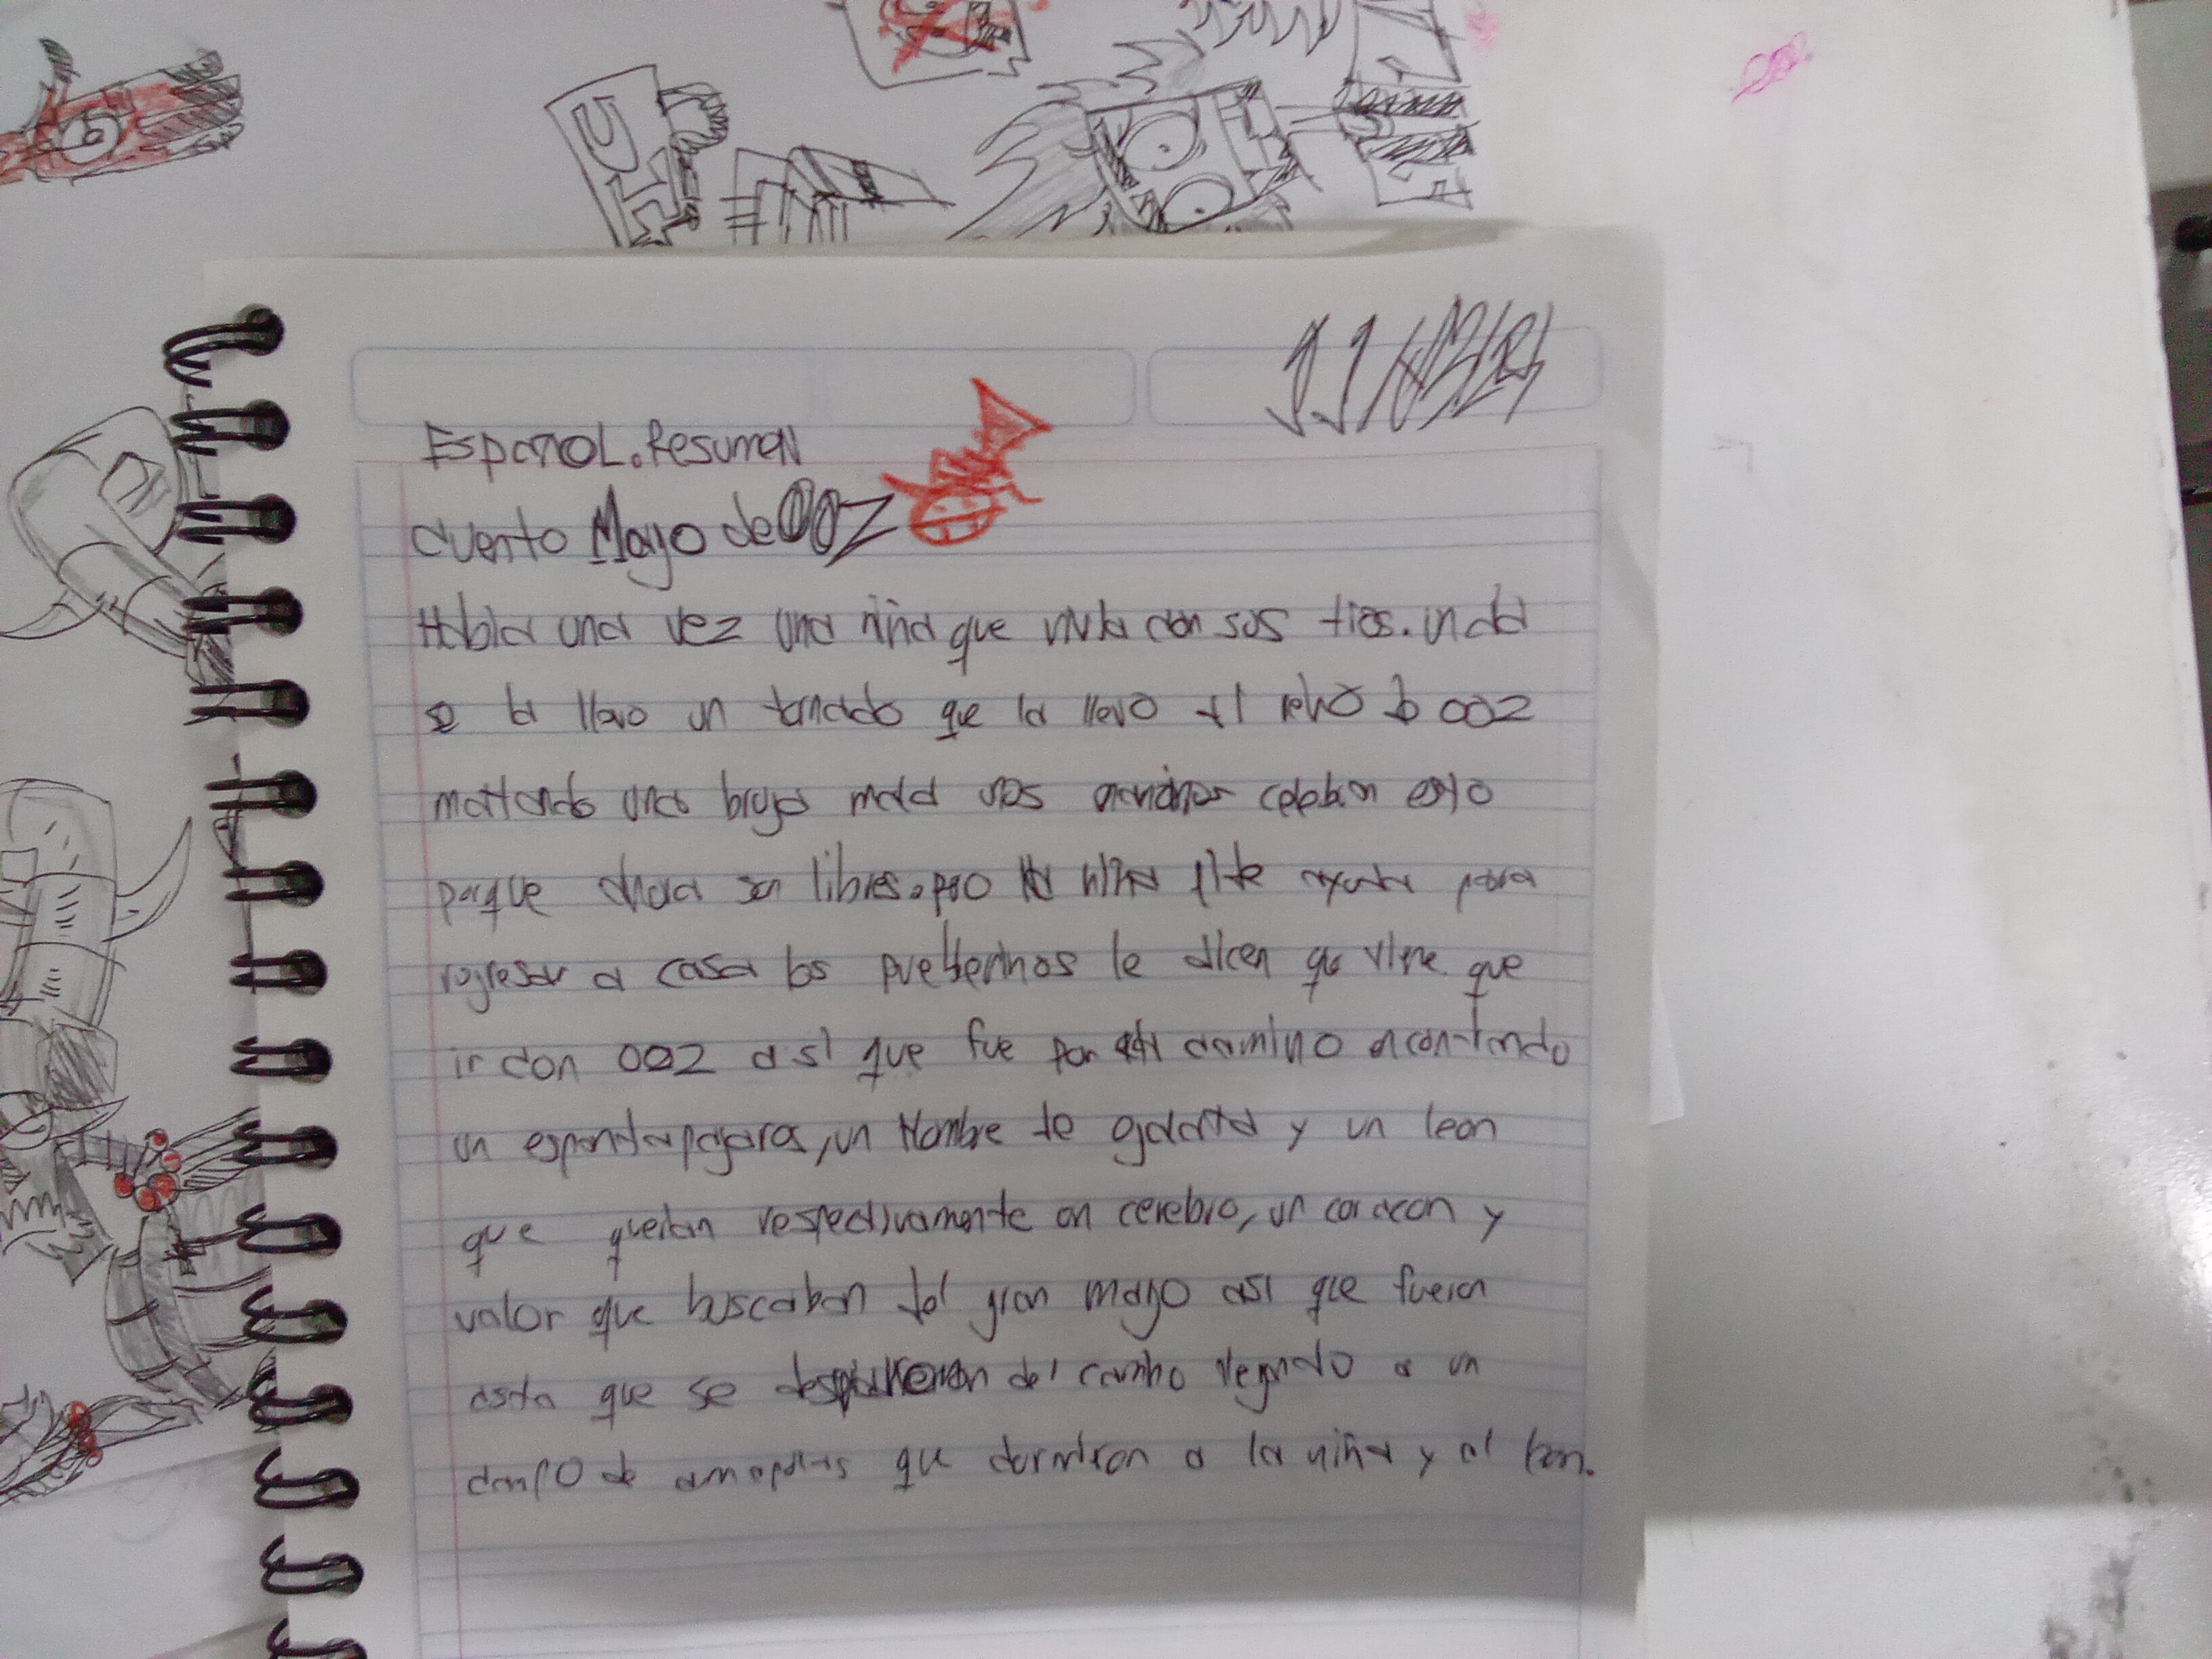 Español. Resumen
cuento Mago de OOZ
Habia una vez una niña que vivia con sus tios. un dia
se la llevo un tornado que la llevo al reino de OOZ
mattando una bruja mala unos celebran esto
porque ahora son libres. pero la niña pide ayuda para
regresar a casa los pueblerinos le dicen que tiene que
ir con OOZ asi que fue por el camino encontrando
un espantapajaros, un Hombre de ojalata y un leon
que querian respectivamente un cerebro, un corazon y
valor que buscaban del gran mago asi que fueron
asta que se del camino llegando a un
campo de amapolas que durmieron a la niña y al leon.